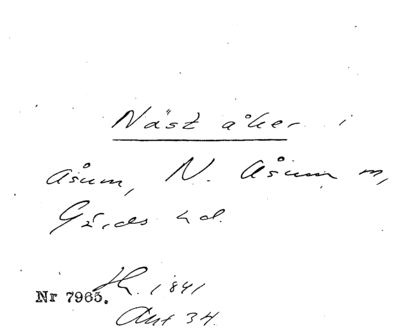 Näst åker i
Åsum, N. Åsum sn,
Gärds hd.
Hs. 1841
Nr 7965.
Akt 34.